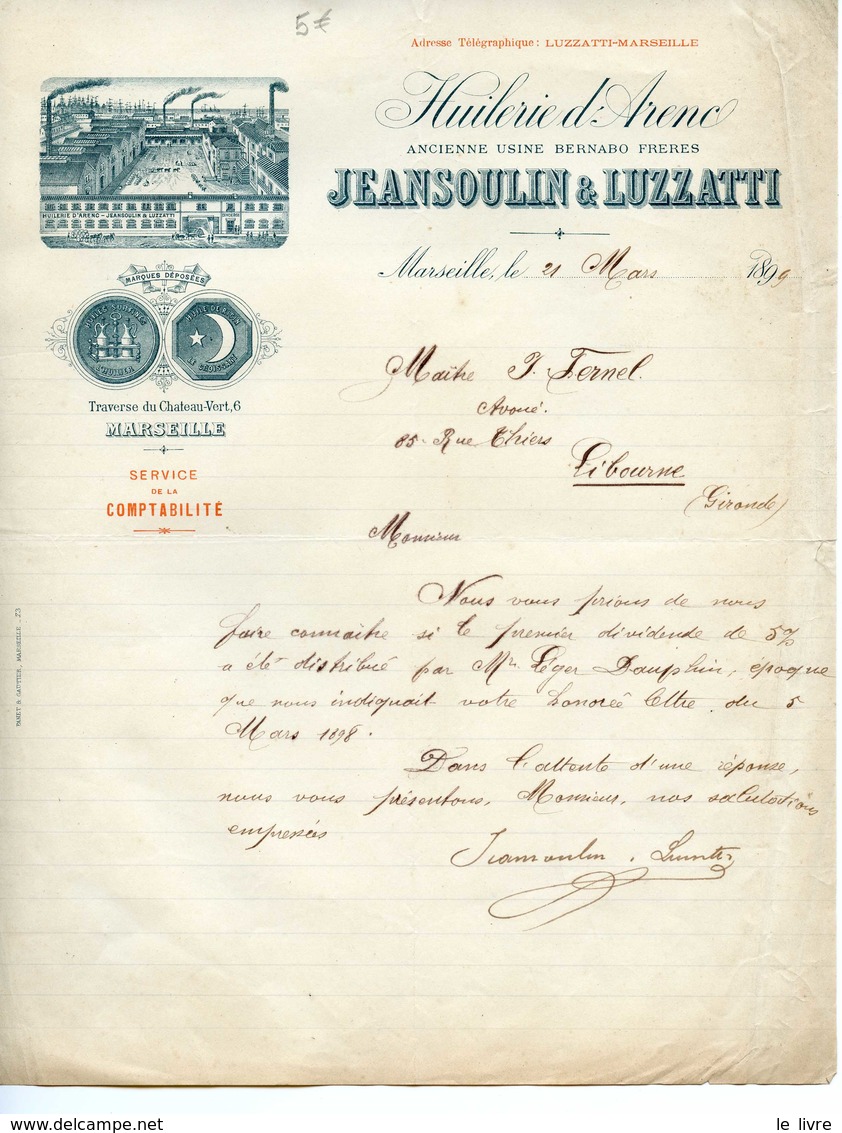 5€
Adresse Télégraphique: LUZZATTI-MARSEILLE
Huilerie d'Arenc
ANCIENNE USINE BERNABO FRERES
JEANSOULIN & LUZZATTI
HUILERIE D'ARENC - JEANSOULIN & LUZZATTI
Marseille, le 21 Mars 1899
MARQUES DÉPOSÉES
HUILES SURFINES
L'HUILIER
LE CROISSANT
Traverse du Chateau-Vert, 6
MARSEILLE
SERVICE
DE LA
COMPTABILITÉ
Maître J. Fernel
Avoué.
85 - Rue Thiers
Libourne
(Gironde)
Monsieur
Nous vous prions de nous
faire connaître si le premier dividende de 5%
a été distribué par Mr. Léger Dauphin, époque
que nous indiquait votre honorée lettre du 5
Mars 1898.
Dans l'attente d'une réponse,
nous vous présentons, Monsieur, nos salutations
empressées
Jeansoulin & Luzzatti
FAMET & GAUTIER, MARSEILLE - Z3
le livre